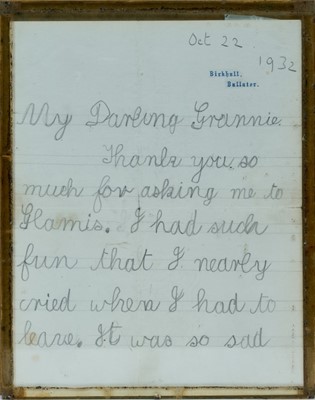 Oct 22
1932
Birkhall,
Ballater.
My Darling Grannie.
Thank you so
much for asking me to
Glamis. I had such
fun that I nearly
cried when I had to
leave. It was so sad